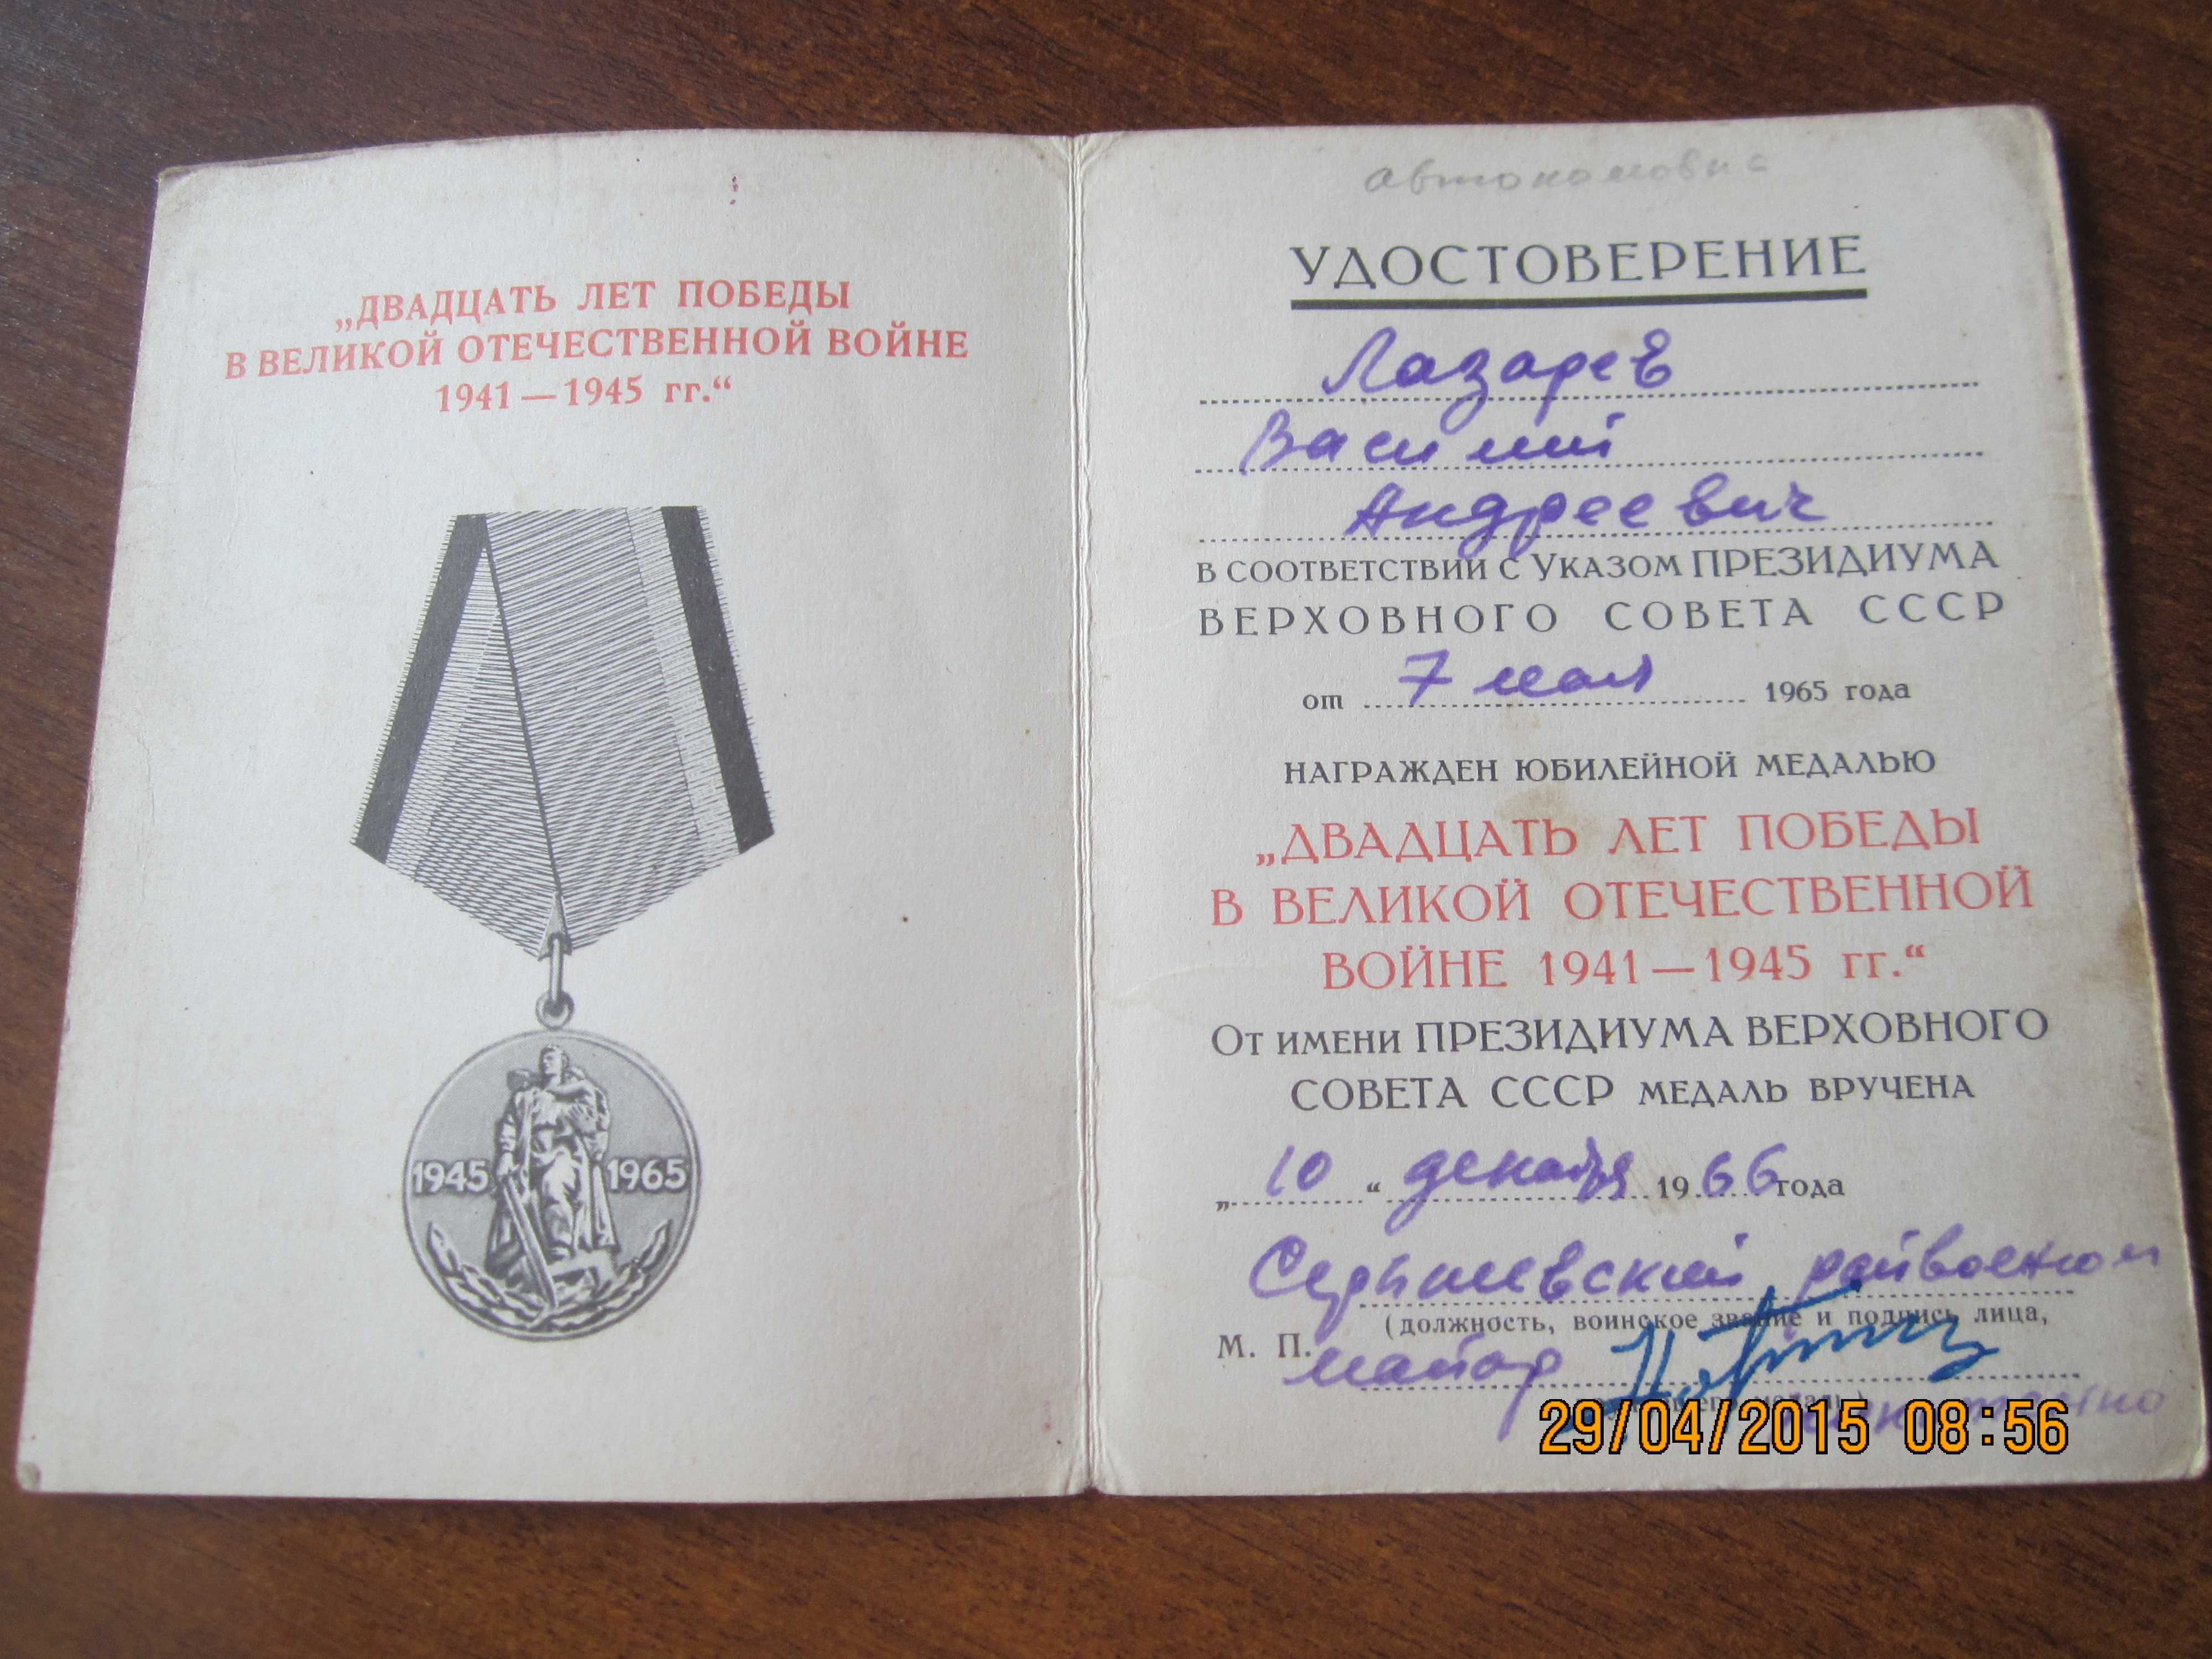 „ДВАДЦАТЬ ЛЕТ ПОБЕДЫ
В ВЕЛИКОЙ ОТЕЧЕСТВЕННОЙ ВОЙНЕ
1941—1945 гг.“
1945 1965
автономовка
УДОСТОВЕРЕНИЕ
Лазарев
Василий
Андреевич
В СООТВЕТСТВИИ С УКАЗОМ ПРЕЗИДИУМА
ВЕРХОВНОГО СОВЕТА СССР
от 7 мая 1965 года
НАГРАЖДЕН ЮБИЛЕЙНОЙ МЕДАЛЬЮ
„ДВАДЦАТЬ ЛЕТ ПОБЕДЫ
В ВЕЛИКОЙ ОТЕЧЕСТВЕННОЙ
ВОЙНЕ 1941—1945 гг.“
ОТ ИМЕНИ ПРЕЗИДИУМА ВЕРХОВНОГО
СОВЕТА СССР МЕДАЛЬ ВРУЧЕНА
„10“ декабря 1966 года
Серышевский райвоенком
(должность, воинское звание и подпись лица,
М. П. майор
медаль)
29/04/2015 08:56